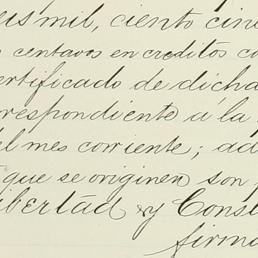 eis mil, ciento cinc
centavos en creditos co
ertificado de dicha
respondiente á la
l mes corriente; ad
que se originen son
ibertad y Const
firma